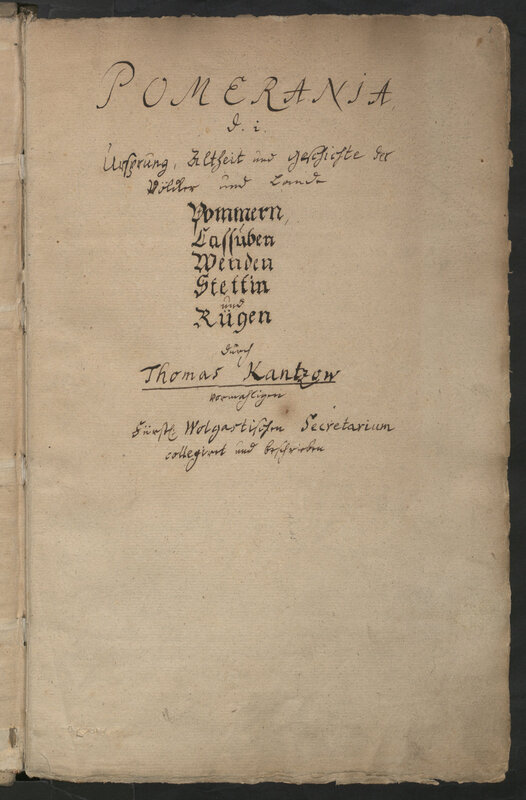 POMERANIA,
d. i.
Ursprung, Altheit und Geschichte der
Völcker und Lande
Pommern,
Cassuben
Wenden
Stettin
und
Rügen
durch
Thomas Kantzow
vormahligen
Fürstl. Wolgastischen Secretarium
collegiret und beschrieben